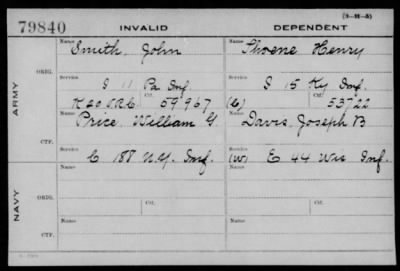 (3-M-5)
79840 INVALID DEPENDENT
Name Name
Smith, John Thoene Henry
ORIG.
Service Service
I 11 Pa Inf I 15 Ky Inf.
Ctf. Ctf.
59967 (C) 53722
ARMY
Name Name
Price, William G. Davis, Joseph B
CTF.
Service Service
C 188 N.Y. Inf. (W) E 44 Wis Inf.
Name Name
ORIG.
Service Ctf. Service Ctf.
NAVY
Name Name
CTF.
Service Service